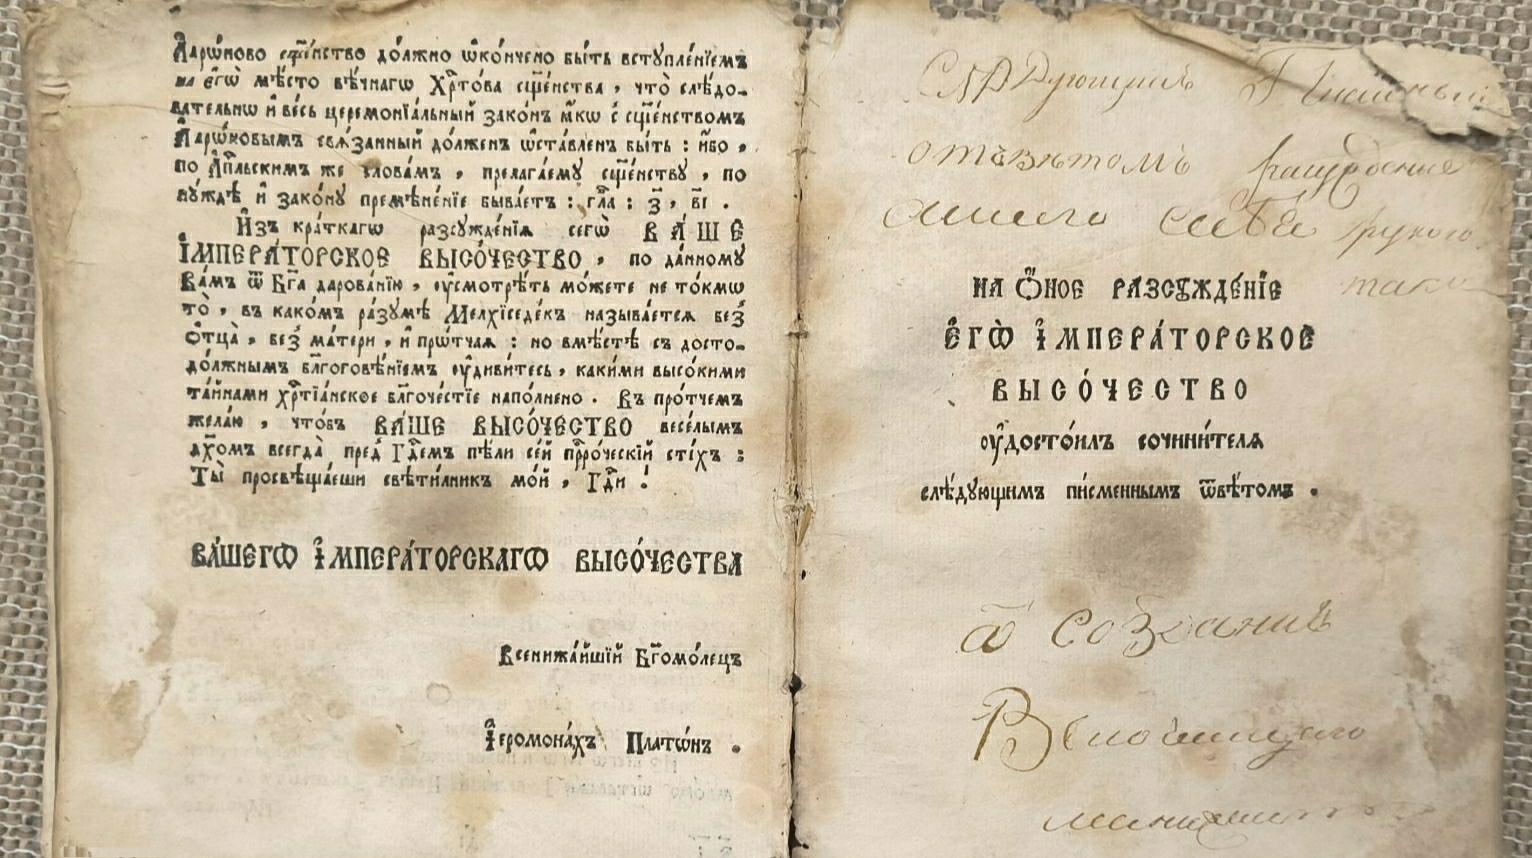 А҆арѡ́ново сщ҃е́нство до́лжно ѡ҆ко́нчено бы́ть вступле́нїемъ
на є҆гѡ̀ мѣ́сто вѣ́чнагѡ Хрⷭ҇то́ва сщ҃е́нства, что̀ слѣ́до-
вательнѡ и҆ ве́сь церемонїа́льный зако́нъ ꙗ҆́кѡ с̾ сщ҃е́нствомъ
А҆арѡ́новымъ свѧ́занный до́лженъ ѡ҆ста́вленъ бы́ть : и҆́бо,
по А҆пⷭ҇льскимъ же слова́мъ, прелага́ему сщ҃е́нству, по
нꙋ́ждѣ и҆ зако́нꙋ премѣне́нїе быва́етъ : гла : з҃, в҃і .
И҆зъ кра́ткагѡ разсꙋжде́нїѧ сегѡ̀ ВА́ШЕ
І҆МПЕРА́ТОРСКОЕ ВЫСО́ЧЕСТВО, по да́нномꙋ
Ва́мъ ѿ Бг҃а дарова́нїю, ᲂу҆смотрѣ́ть мо́жете не то́кмѡ
то̀, въ како́мъ ра́зумѣ Мелхїседе́къ называ́етсѧ без̾
ѻ҆тца̀, без̾ ма́тери, и҆ прѡ́тчаѧ : но вмѣ́стѣ съ досто-
до́лжнымъ бл҃гоговѣ́нїемъ ᲂу҆диви́тесь, каки́ми высо́кими
та́йнами хрⷭ҇тїа́нское бл҃гоче́стїе напо́лнено . Въ про́тчемъ
жела́ю, что́бъ ВА́ШЕ ВЫСО́ЧЕСТВО весе́лымъ
дх҃омъ всегда̀ пред̾ Гдⷭ҇емъ пѣ́ли се́й прⷪ҇ро́ческїй сті́хъ :
Ты̀ просвѣща́еши свѣти́лникъ мо́й, Гдⷭ҇и !
ВА́ШЕГѠ И҆МПЕРА́ТОРСКАГѠ ВЫСО́ЧЕСТВА
Всенижа́йшїй Бг҃омо́лецъ
І҆еромона́хъ Плато́нъ .
НА Ѻ҆́НОЕ РАЗСꙊЖДЕ́НЇЕ
Е҆ГѠ̀ І҆МПЕРА́ТОРСКОЕ
ВЫСО́ЧЕСТВО
ᲂу҆досто́илъ сочини́телѧ
слѣ́дующимъ пи́сменнымъ ѿвѣ́томъ .